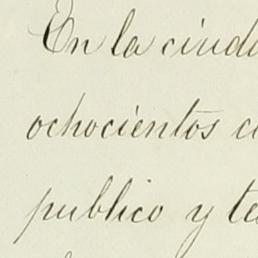 En la ciuda
ochocientos c
publico y te